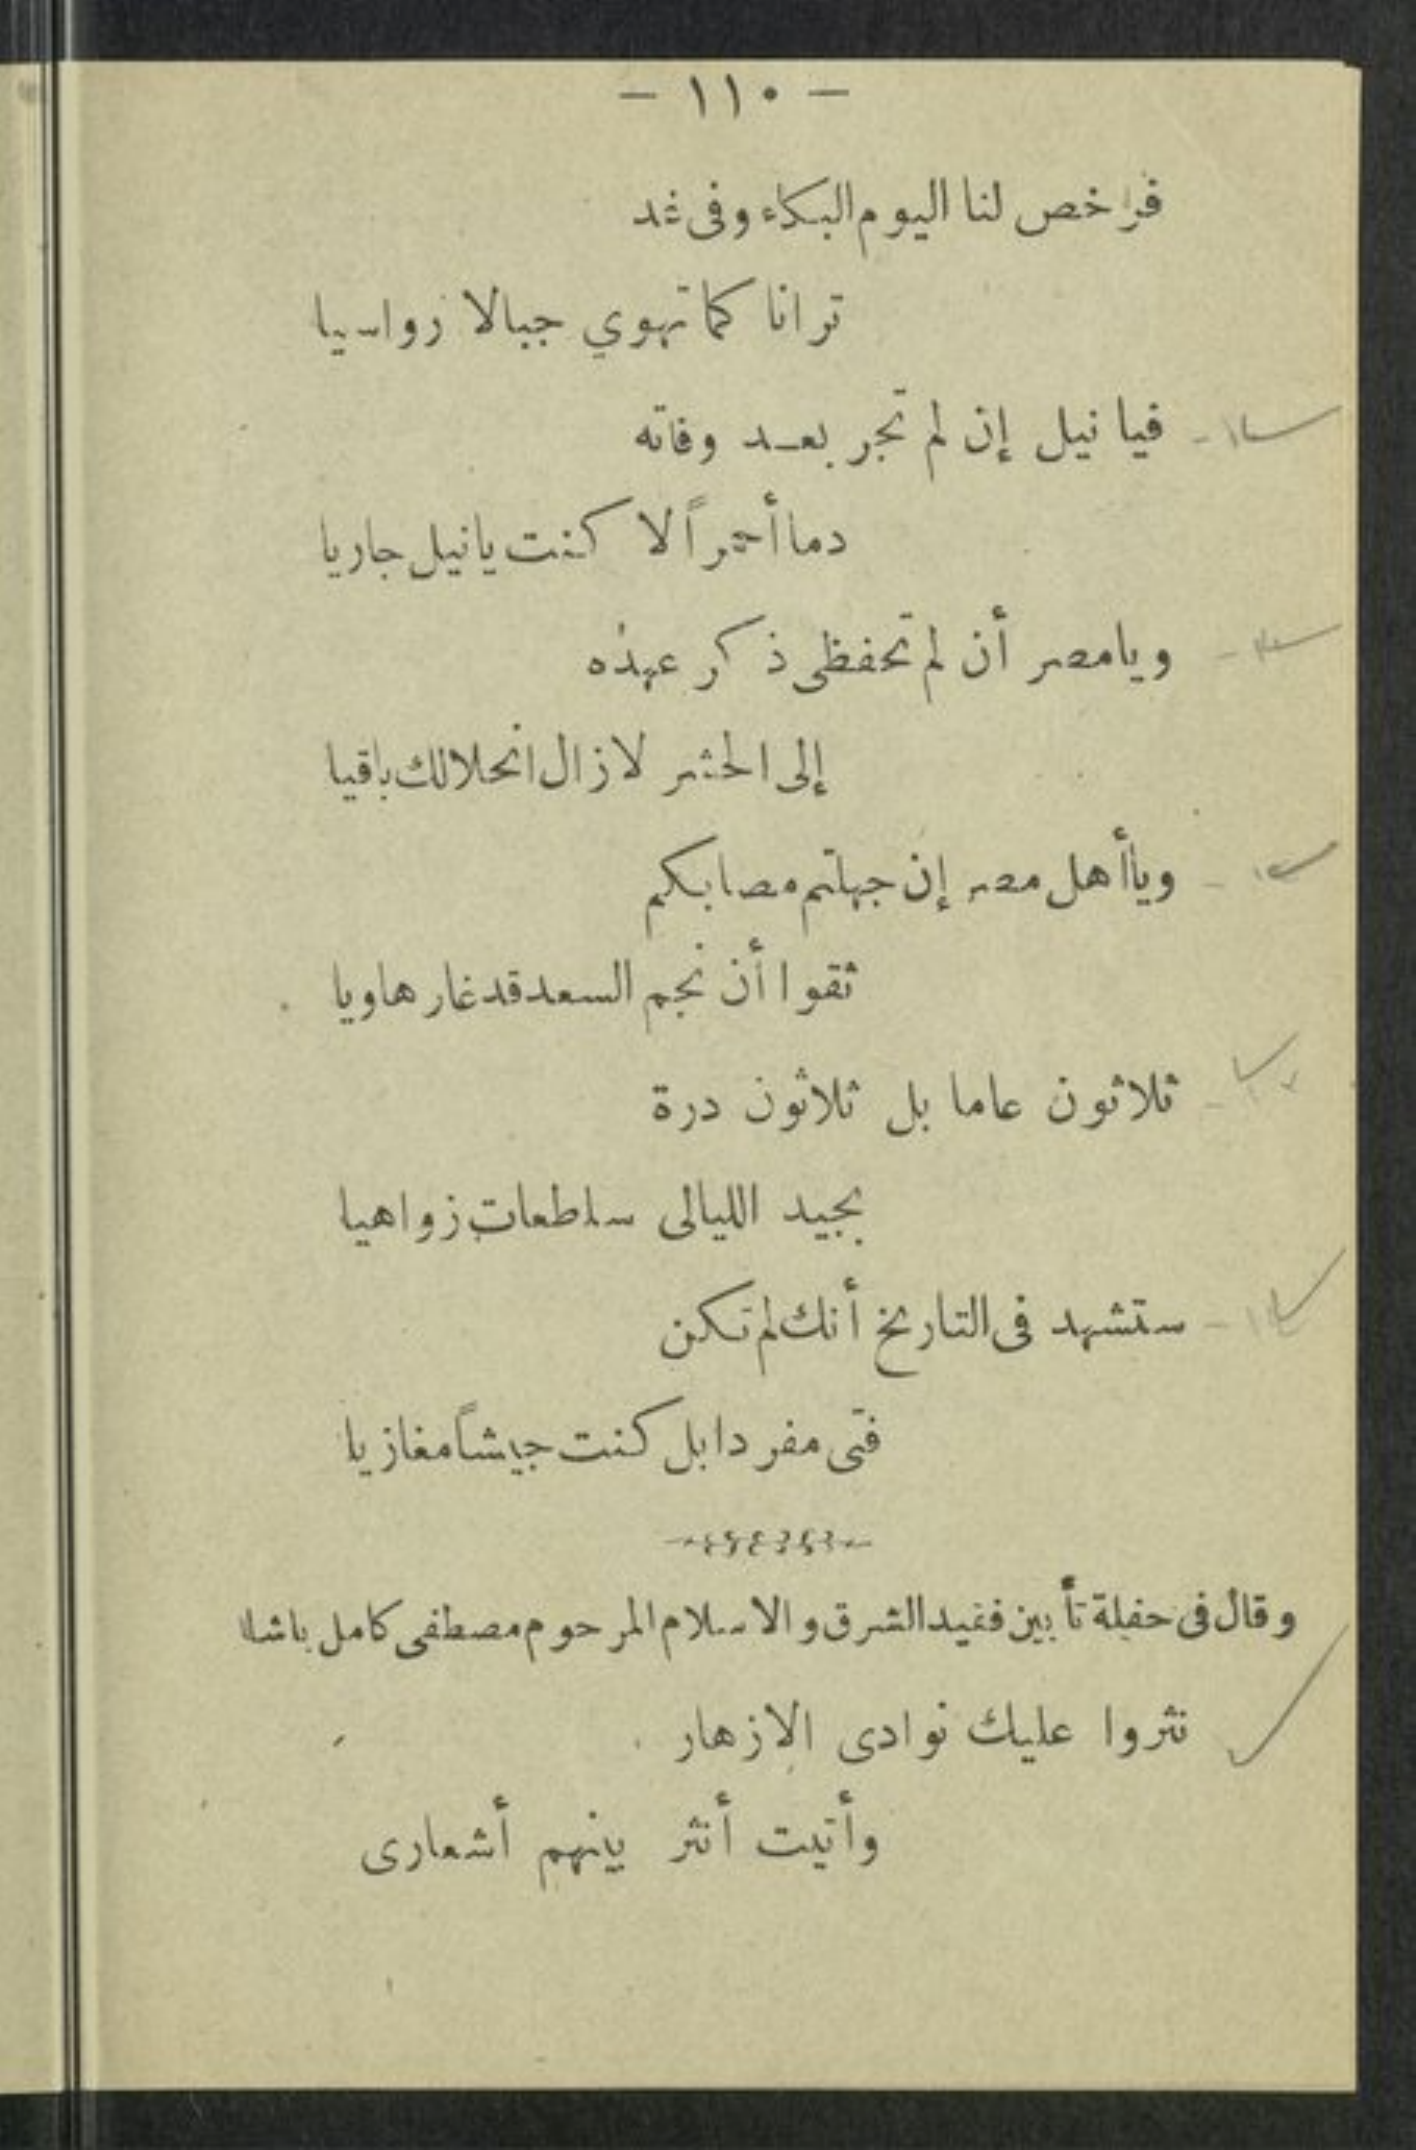 - ١١٠ -
فرخص لنا اليوم البكاء وفى غد
ترانا كما تهوي جبالا رواسيا
فيا نيل إن لم تجر بعد وفاته
دما أحمراً لا كنت يا نيل جاريا
ويا مصر أن لم تحفظى ذكر عهده
إلى الحشر لا زال انحلالك باقيا
ويا أهل مصر إن جهلتم مصابكم
ثقوا أن نجم السعد قد غار هاويا
ثلاثون عاما بل ثلاثون درة
بجيد الليالى ساطعات زواهيا
ستشهد فى التاريخ أنك لم تكن
فتى مفردا بل كنت جيشاً مغازيا
وقال فى حفلة تأبين فقيد الشرق والاسلام المرحوم مصطفى كامل باشا
نثروا عليك نوادى الازهار
وأتيت أنثر بينهم أشعارى